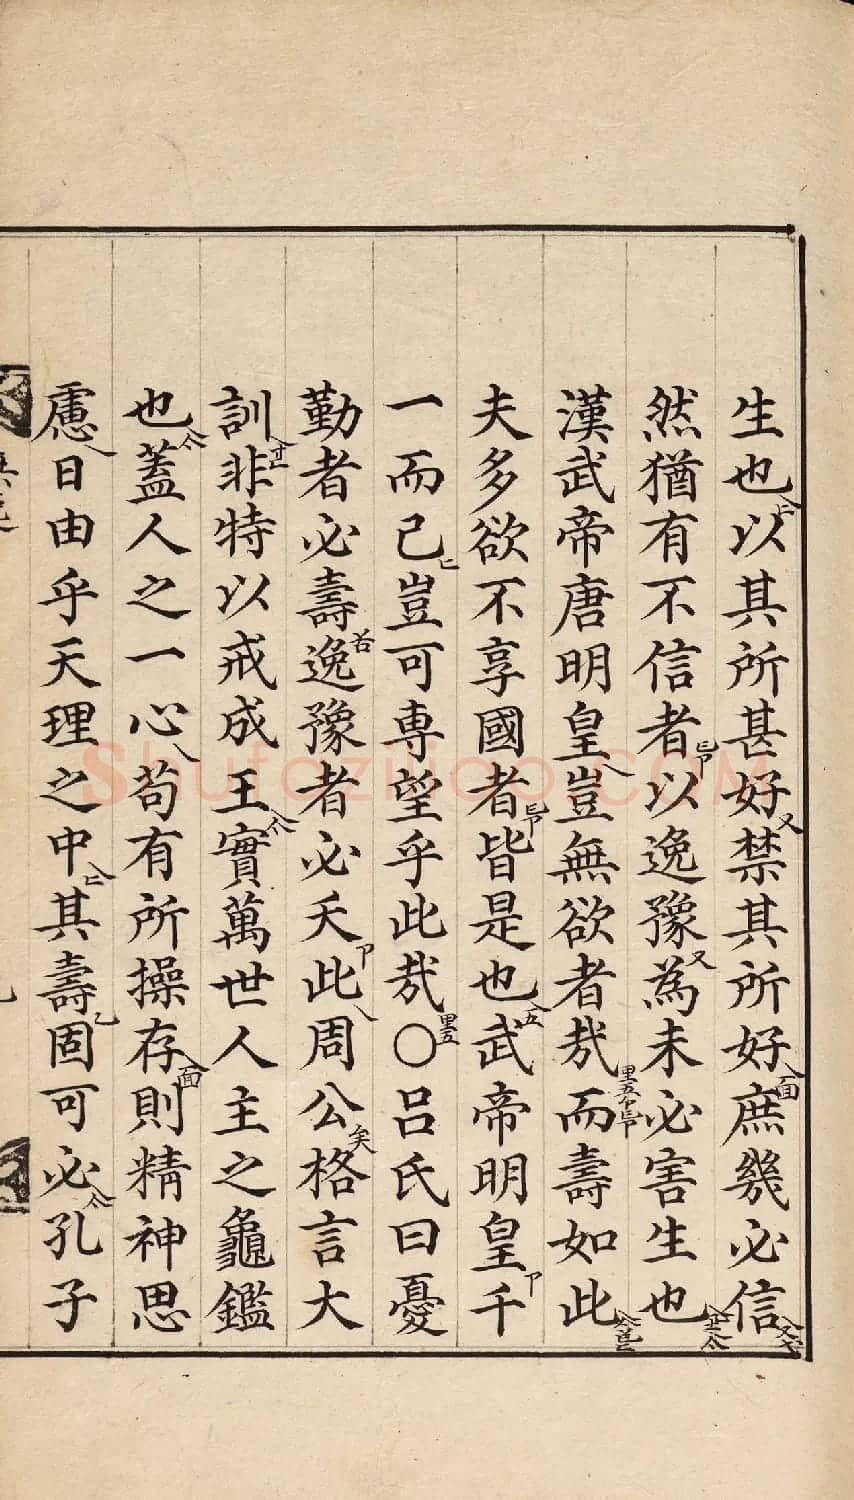 生也以其所甚好禁其所好庶幾必信
然猶有不信者以逸豫為未必害生也
漢武帝唐明皇豈無欲者㢤而壽如此
夫多欲不享國者皆是也武帝明皇千
一而已豈可專望乎此㢤〇吕氏曰憂
勤者必壽逸豫者必夭此周公格言大
訓非特以戒成王實萬世人主之龜鑑
也蓋人之一心苟有所操存則精神思
慮日由乎天理之中其壽固可必孔子
Shufaziliao.COM